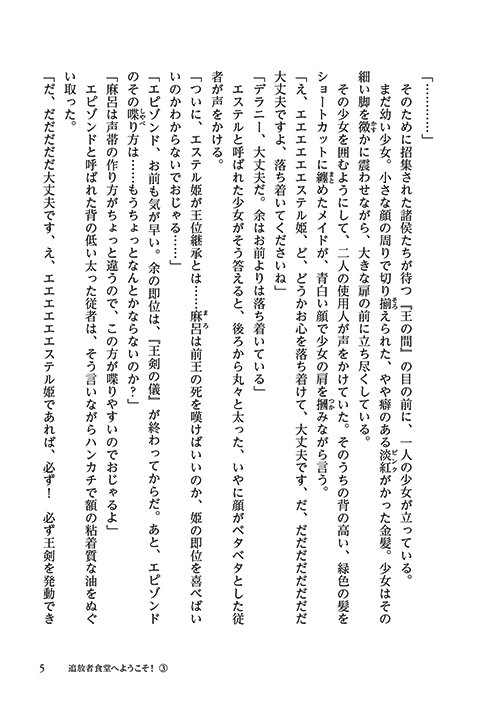 「…………」
　そのために招集された諸侯たちが待つ『王の間』の目の前に、一人の少女が立っている。
　まだ幼い少女。小さな顔の周りで切り揃えられた、やや癖のある淡紅がかった金髪。少女はその
細い脚を微かに震わせながら、大きな扉の前に立ち尽くしている。
　その少女を囲むようにして、二人の使用人が声をかけていた。そのうちの背の高い、緑色の髪を
ショートカットに纏めたメイドが、青白い顔で少女の肩を摑みながら言う。
「え、エエエエエエステル姫、ど、どうかお心を落ち着けて、大丈夫です、だ、だだだだだだだだ
大丈夫ですよ、落ち着いてくださいね」
「デラニー、大丈夫だ。余はお前よりは落ち着いている」
　エステルと呼ばれた少女がそう答えると、後ろから丸々と太った、いやに顔がベタベタとした従
者が声をかける。
「ついに、エステル姫が王位継承とは……麻呂は前王の死を嘆けばいいのか、姫の即位を喜べばい
いのかわからないでおじゃる……」
「エピゾンド、お前も気が早い。余の即位は、『王剣の儀』が終わってからだ。あと、エピゾンド
のその喋り方は……もうちょっとなんとかならないのか？」
「麻呂は声帯の作り方がちょっと違うので、この方が喋りやすいのでおじゃるよ」
　エピゾンドと呼ばれた背の低い太った従者は、そう言いながらハンカチで額の粘着質な油をぬぐ
い取った。
「だ、だだだだだだ大丈夫です、え、エエエエエエステル姫であれば、必ず！　必ず王剣を発動でき
5　追放者食堂へようこそ！ ③